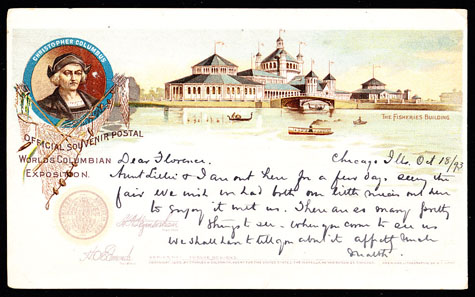 CHRISTOPHER COLUMBUS
OFFICIAL SOUVENIR POSTAL
WORLD'S COLUMBIAN
EXPOSITION.
THE FISHERIES BUILDING
Chicago Ills. Oct 18/93
Dear Florence.
Aunt & I are out here for a few days seeing the
fair We wish we had both our little nieces out here
to enjoy it with us. There are so many pretty
things to see. When you come to see us
We shall have to tell you about it affect Uncle